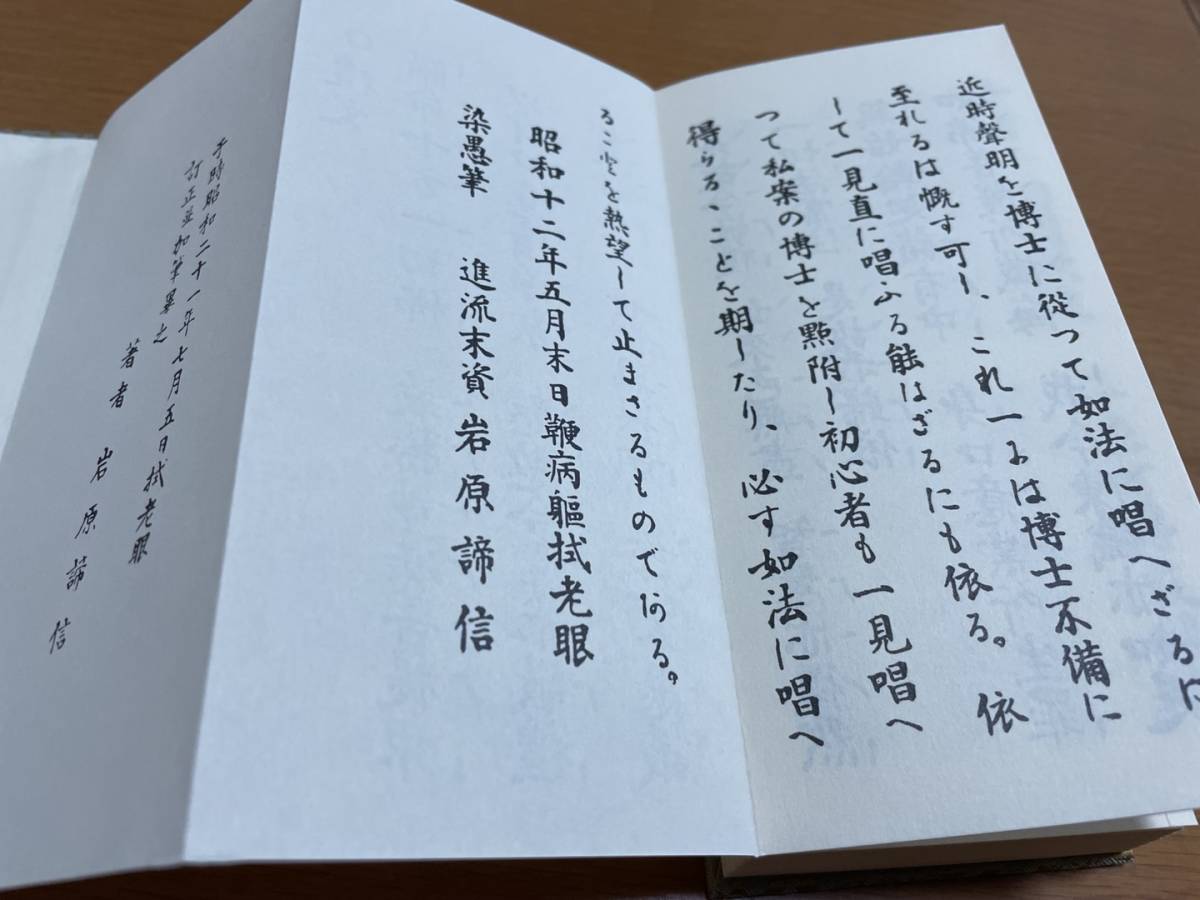 近時聲明を博士に從つて如法に唱へざるに
至れるは慨す可し、これ一には博士不備に
して一見直に唱ふる能はざるにも依る。依
つて私案の博士を點附し初心者も一見唱へ
得らるゝことを期したり、必す如法に唱へ
ることを熱望して止まさるものである。
昭和十二年五月末日鞭病軀拭老眼
染愚筆 進流末資 岩原諦信
于時昭和二十一年七月五日拭老眼
訂正並加筆畢之
著者 岩原諦信